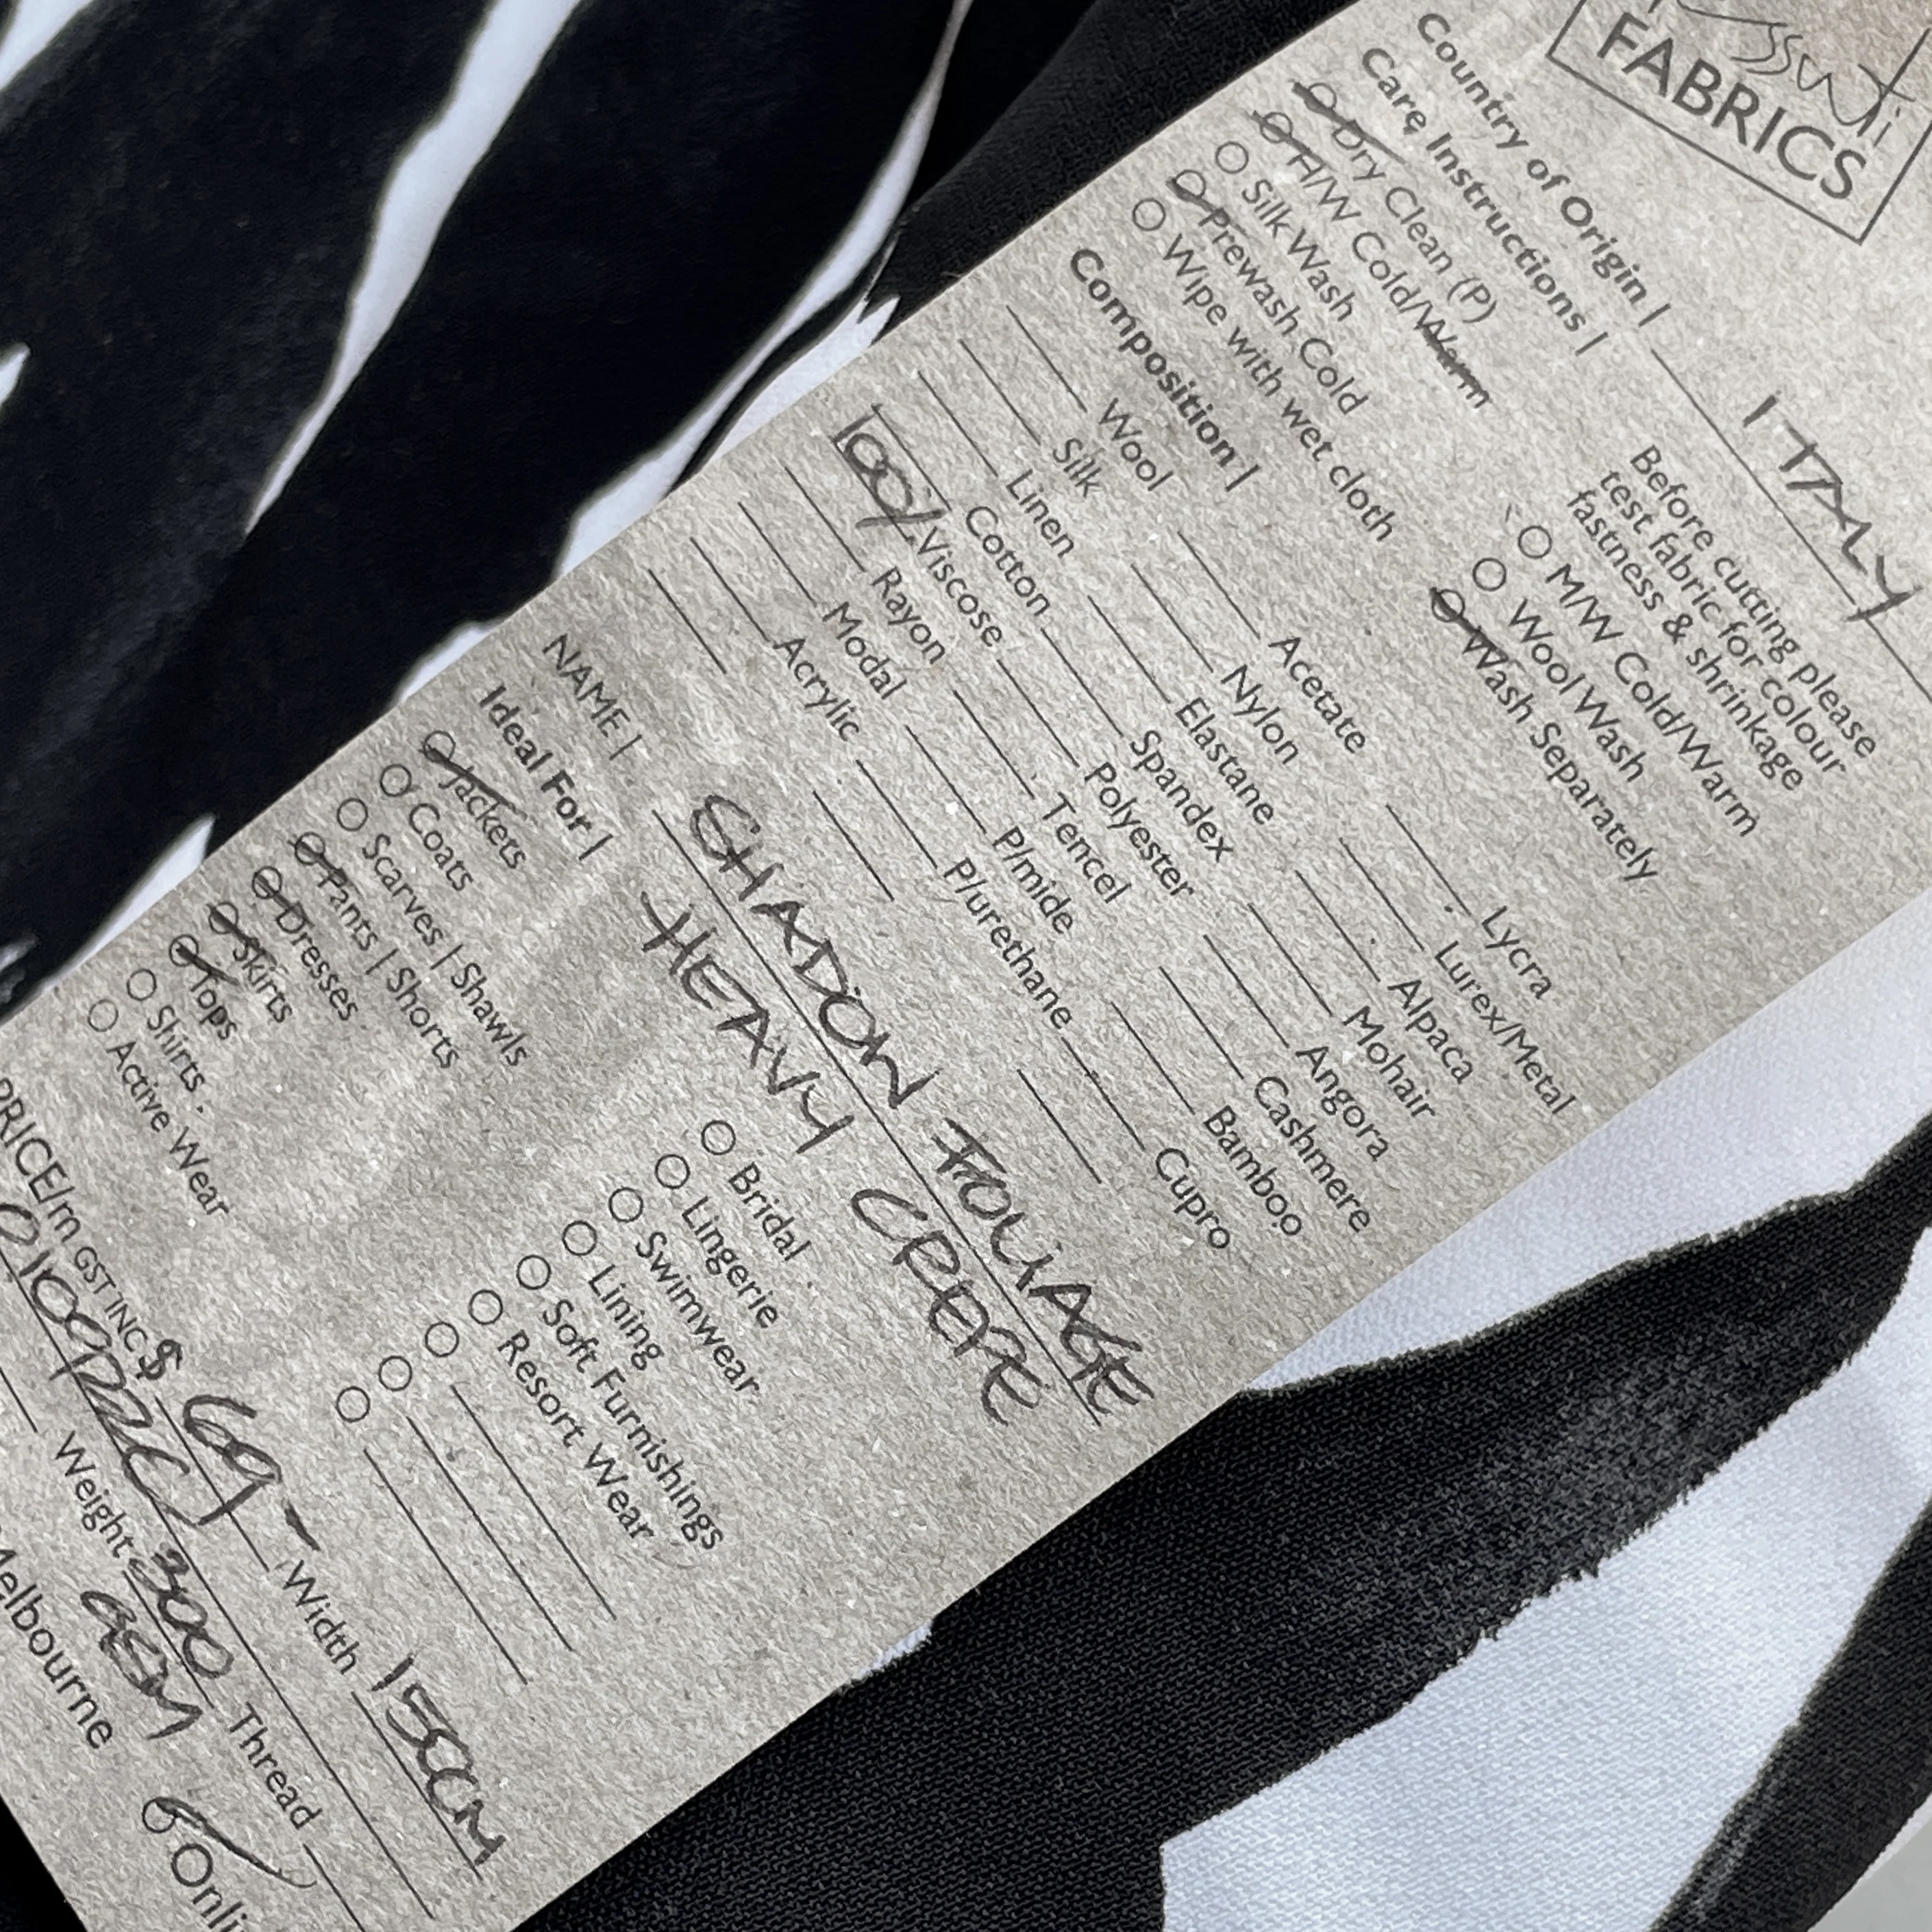 FABRICS
Country of Origin | ITALY
Care Instructions |
Before cutting please
test fabric for colour
fastness & shrinkage
Dry Clean (P)
H/W Cold/Warm
Silk Wash
Prewash Cold
Wipe with wet cloth
M/W Cold/Warm
Wool Wash
Wash Separately
Composition |
Wool Acetate Lycra
Silk Nylon Lurex/Metal
Linen Elastane Alpaca
Cotton Spandex Mohair
100% Viscose Polyester Angora
Rayon Tencel Cashmere
Modal P/mide Bamboo
Acrylic P/urethane Cupro
NAME | SHADOW FOLIAGE
HEAVY CREPE
Ideal For |
Jackets
Coats
Scarves | Shawls
Pants | Shorts
Dresses
Skirts
Tops
Shirts
Active Wear
Bridal
Lingerie
Swimwear
Lining
Soft Furnishings
Resort Wear
PRICE/m GST INC $ 69- Width 150CM
Weight 300 Thread
GSM
Melbourne